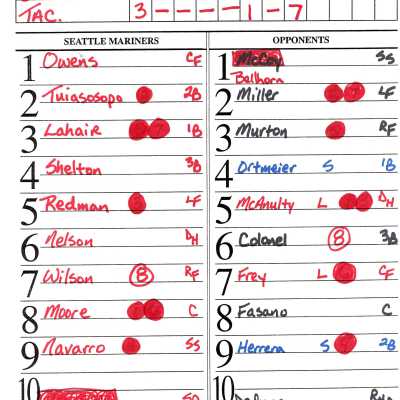 TAC. 3 – – – – 1 – 7
SEATTLE MARINERS OPPONENTS
1 Owens CF
1 McCoy SS
Belhorn
2 Tuiasosopo 2B
2 Miller LF
3 Lahair 1B
3 Murton RF
4 Shelton 3B
4 Ortmeier S 1B
5 Redman LF
5 McAnulty L DH
6 Nelson DH
6 Colonel 8 3B
7 Wilson 8 RF
7 Frey L CF
8 Moore C
8 Fasano C
9 Navarro SS
9 Herrera S 2B
10
10